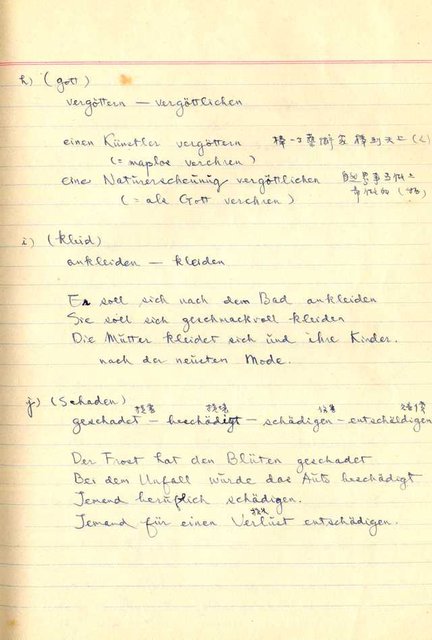 h) (gott)
vergöttern — vergöttlichen
einen Künstler vergöttern 捧一个藝術家捧到天上(人)
(= maplos verehren)
eine Naturerscheinung vergöttlichen
(= als Gott verehren)
i) (kleid)
ankleiden — kleiden
Er soll sich nach dem Bad ankleiden
Sie soll sich geschmackvoll kleiden
Die Mutter kleidet sich und ihre Kinder.
nach der neusten Mode.
j) (Schaden)
損害 損壞 傷害
geschadet — beschädigt — schädigen — entschädigen
Der Frost hat den Blüten geschadet
Bei dem Unfall wurde das Auto beschädigt
Jemand beruflich schädigen.
損失
Jemand für einen Verlust entschädigen.